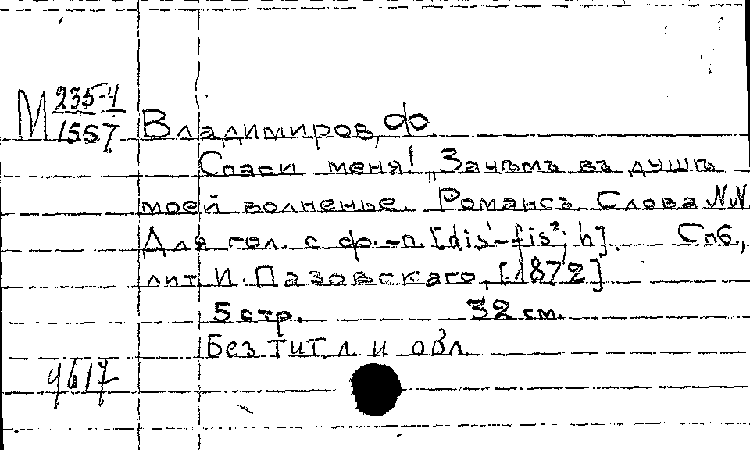 М 235-4
1557
Владимиров, Ф
Спаси меня! „Зачѣмъ въ душѣ
моей волненье. Романсъ. Слова N.N.
Для гол. с ф.-п. [dis¹-fis²; h]. Спб.,
лит. И. Пазовскаго, [1872]
5 стр. 32 см.
Без тит. л. и обл.
9617